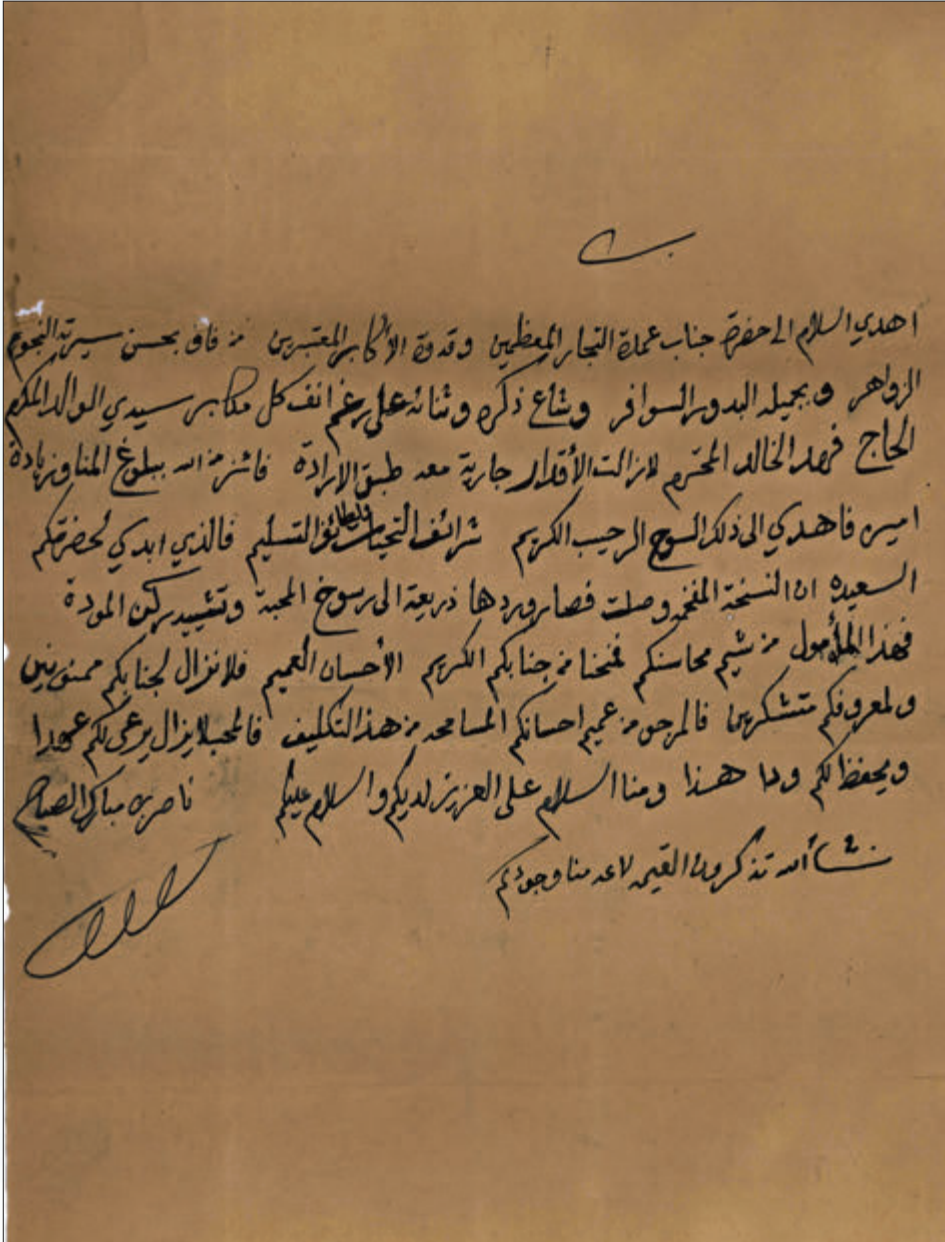 اهدي السلام الى حضرة جناب عمدة التجار المعظمين وقدوة الأكابر المعتبرين من فاق بحسن سيرته النجوم
الزواهر وبجميله البدور السوافر وشاع ذكره وثنائه على رغم انف كل مكابر سيدي الوالد المكرم
الحاج فهد الخالد المحترم لازالت الأقدار جارية معه طبق الارادة فائز من الله ببلوغ المنا وزيادة
امين فاهدي الى ذلك السوح الرحيب الكريم شرائف التحيات ولطائف التسليم فالذي ابدي لحضرتكم
السعيدة ان النسخة المفخمه وصلت فصار ورودها ذريعة الى رسوخ المحبة وتشييد ركن المودة
فهذا المأمول من شيم محاسنكم فمنحنا من جنابكم الكريم الأحسان العميم فلانزال لجنابكم ممنونين
ولمعروفكم متشكرين فالمرجو من عميم احسانكم المسامحه من هذا التكليف فالمحب لايزال يرعى لكم عهودا
ويحفظ لكم ودا هذا ومنا السلام على العزيز لديكم والسلام عليكم ناصر بن مبارك الصباح
نشأ الله تذكرون لاعدمنا وجودكم